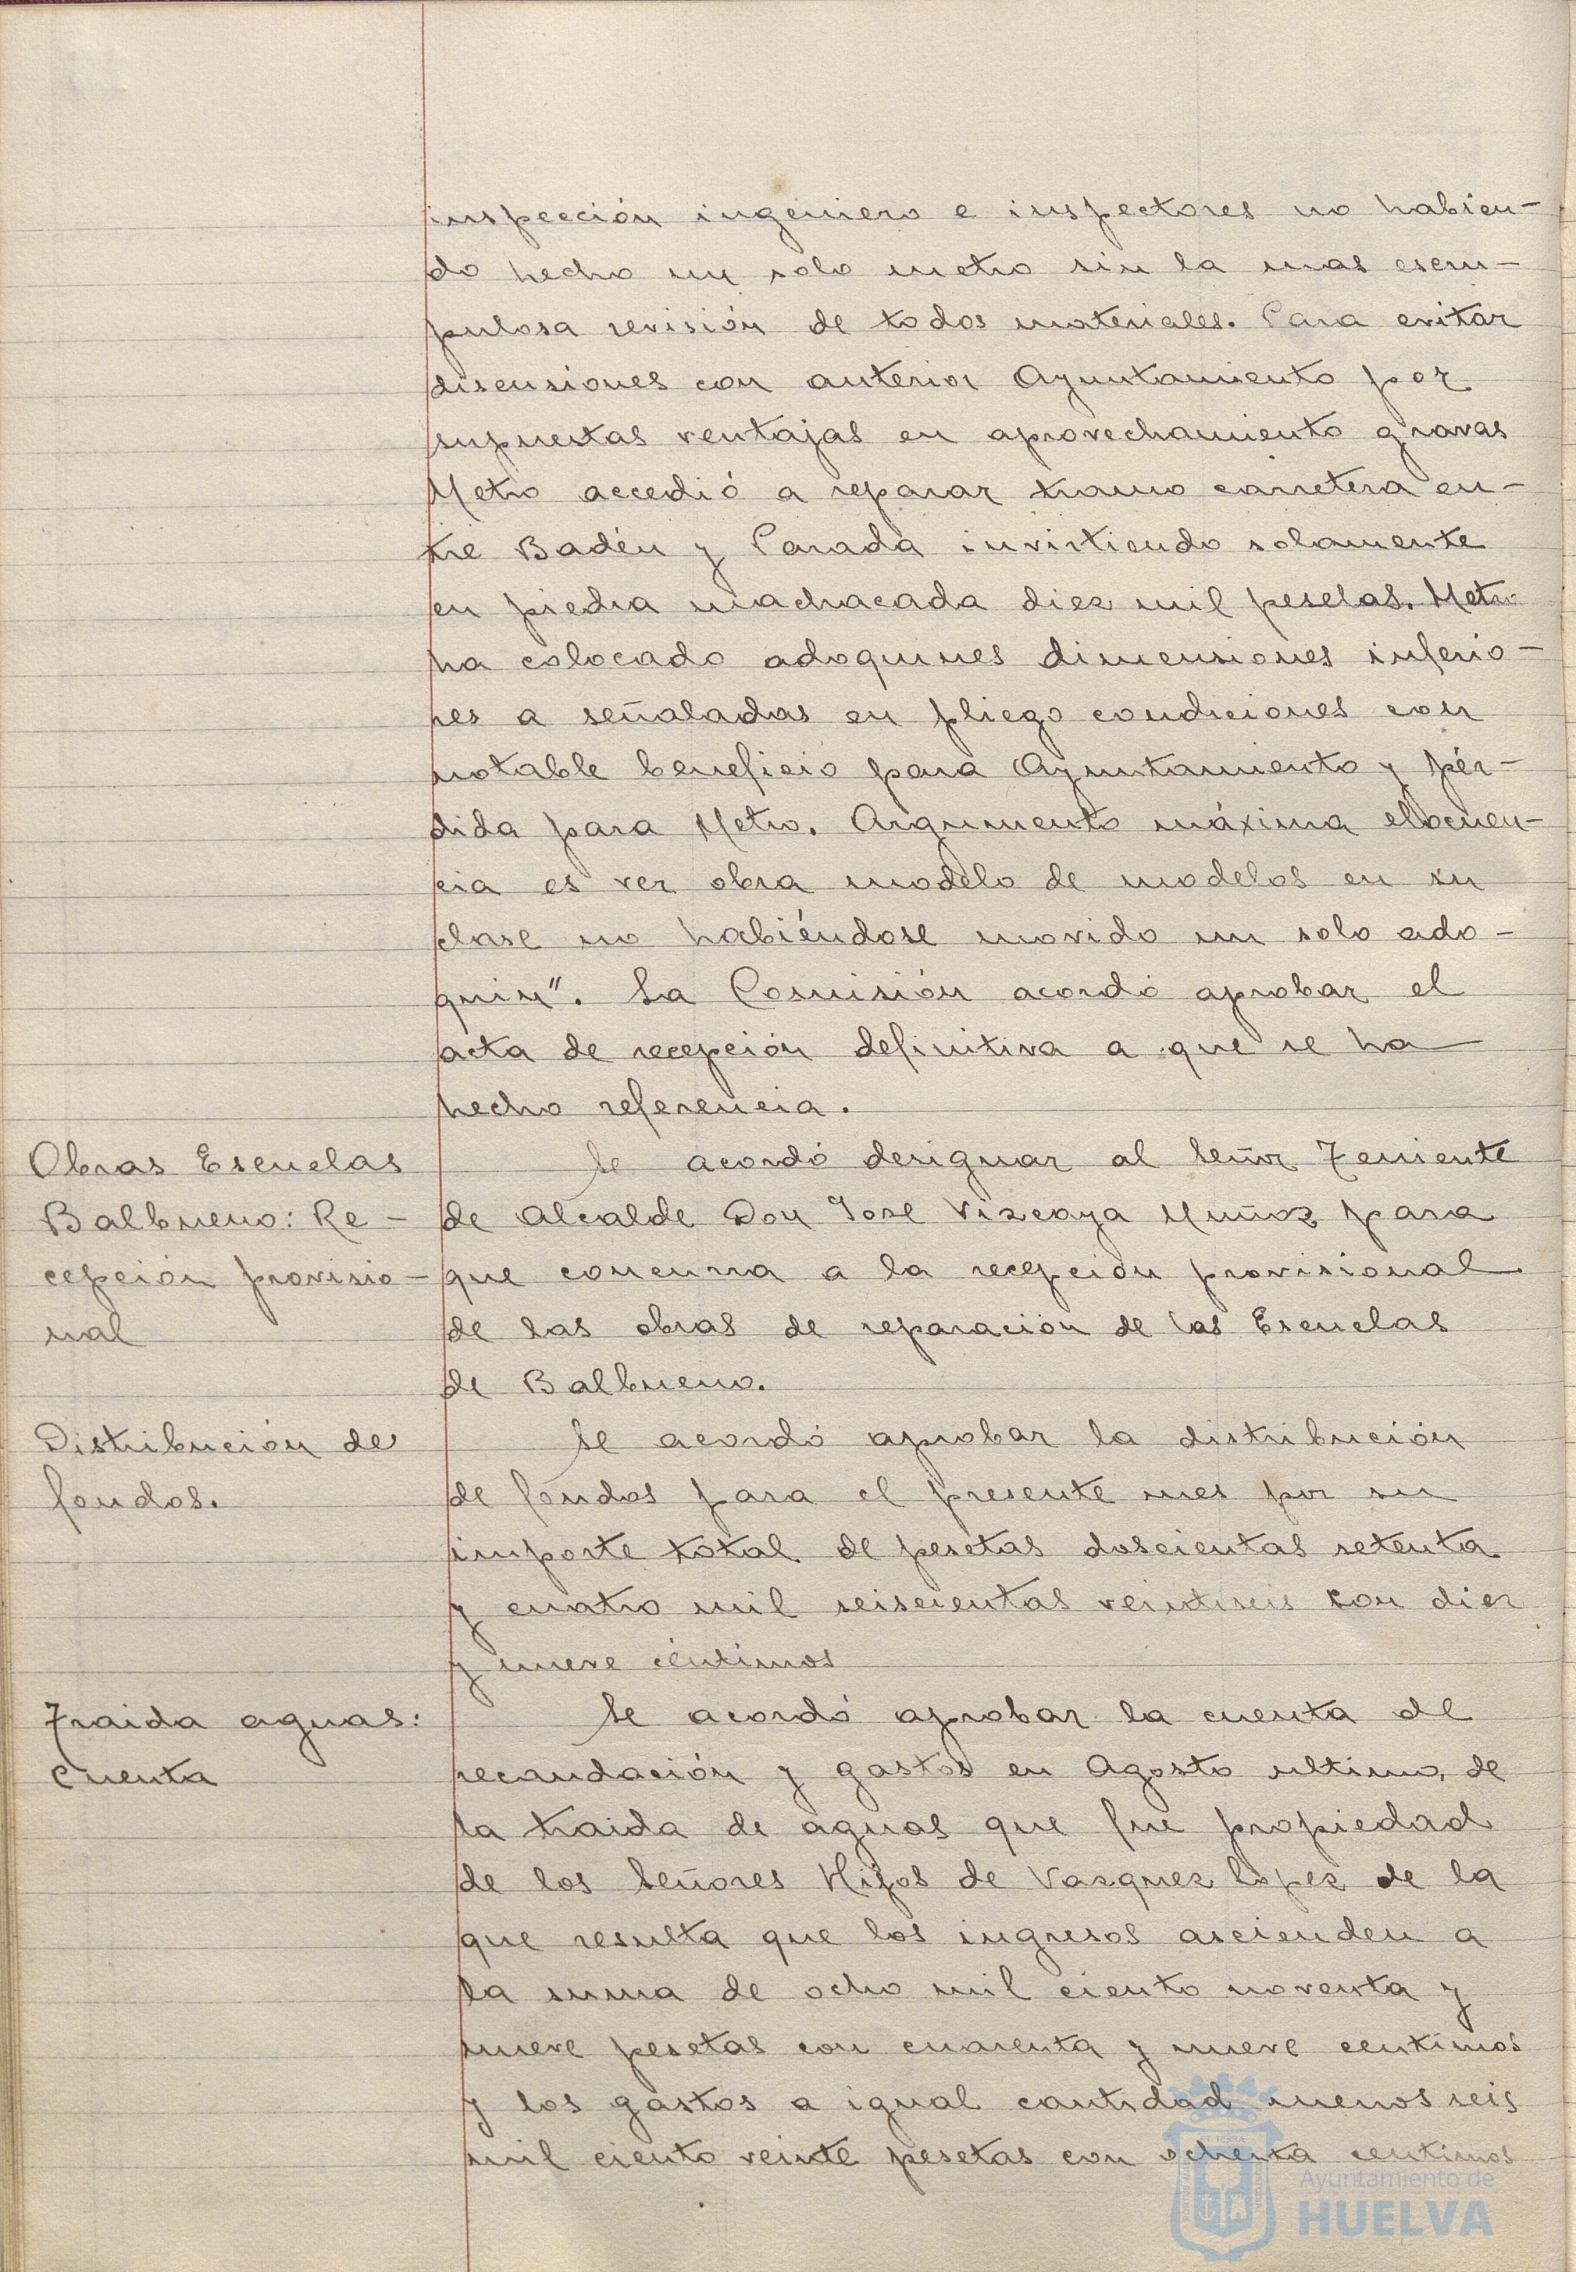 inspección ingeniero e inspectores no habien-
do hecho un solo metro sin la mas escru-
pulosa revisión de todos materiales. Para evitar
discusiones con anterior Ayuntamiento por
supuestas ventajas en aprovechamiento gravas
Metro accedió a reparar tramo carretera en-
tre Badén y Parada invirtiendo solamente
en piedra machacada diez mil pesetas. Metro
ha colocado adoquines dimensiones inferio-
res a señaladas en pliego condiciones con
notable beneficio para Ayuntamiento y pér-
dida para Metro. Argumento máxima elocuen-
cia es ver obra modelo de modelos en su
clase no habiéndose movido un solo ado-
quin". La Comisión acordó aprobar el
acta de recepción definitiva a que se ha
hecho referencia.
Obras Escuelas
Balbueno: Re-
cepción provisio-
nal
Se acordó designar al Señor Teniente
de Alcalde Don José Vizcaya Muñoz para
que concurra a la recepción provisional
de las obras de reparación de las Escuelas
de Balbueno.
Distribución de
fondos.
Se acordó aprobar la distribución
de fondos para el presente mes por su
importe total de pesetas doscientas setenta
y cuatro mil seiscientas veintiseis con diez
y nueve céntimos
Traida aguas:
Cuenta
Se acordó aprobar la cuenta de
recaudación y gastos en Agosto ultimo, de
la traida de aguas que fue propiedad
de los Señores Hijos de Vazquez Lopez de la
que resulta que los ingresos ascienden a
la suma de ocho mil ciento noventa y
nueve pesetas con cuarenta y nueve centimos
y los gastos a igual cantidad menos seis
mil ciento veinte pesetas con ochenta centimos
Ayuntamiento de
HUELVA